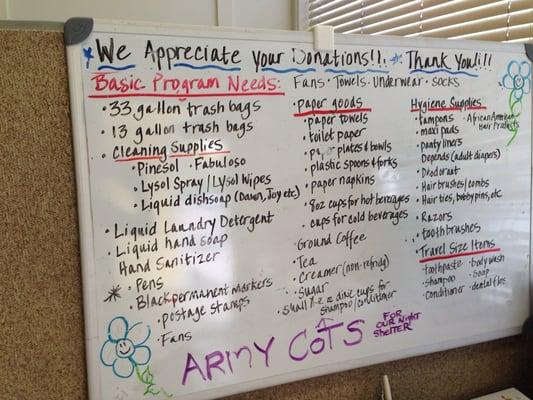 We Appreciate Your Donations!!! Thank You!!!
Basic Program Needs:
Fans · Towels · Underwear · socks
· 33 gallon trash bags
· 13 gallon trash bags
· Cleaning Supplies
· Pinesol · Fabuloso
· Lysol Spray / Lysol Wipes
· Liquid dishsoap (Dawn, Joy etc)
· Liquid Laundry Detergent
· Liquid hand soap
Hand Sanitizer
· Pens
· Black permanent markers
· postage stamps
· Fans
· paper goods
· paper towels
· toilet paper
· paper plates & bowls
· plastic spoons & forks
· paper napkins
· 8oz cups for hot beverages
· cups for cold beverages
· Ground Coffee
· Tea
· Creamer (non-refridg)
· Sugar
· small 1-2 oz dixie cups for
shampoo/conditioner
Hygiene Supplies
· tampons
· maxi pads
· panty liners
Depends (adult diapers)
· Deodorant
· Hair brushes/combs
· Hair ties, bobby pins, etc
· Razors
· toothbrushes
· African American
Hair Products
· Travel Size Items
· toothpaste · body wash
· shampoo · soap
· conditioner · dental flos
ARMY COTS
FOR
OUR NIGHT
SHELTER